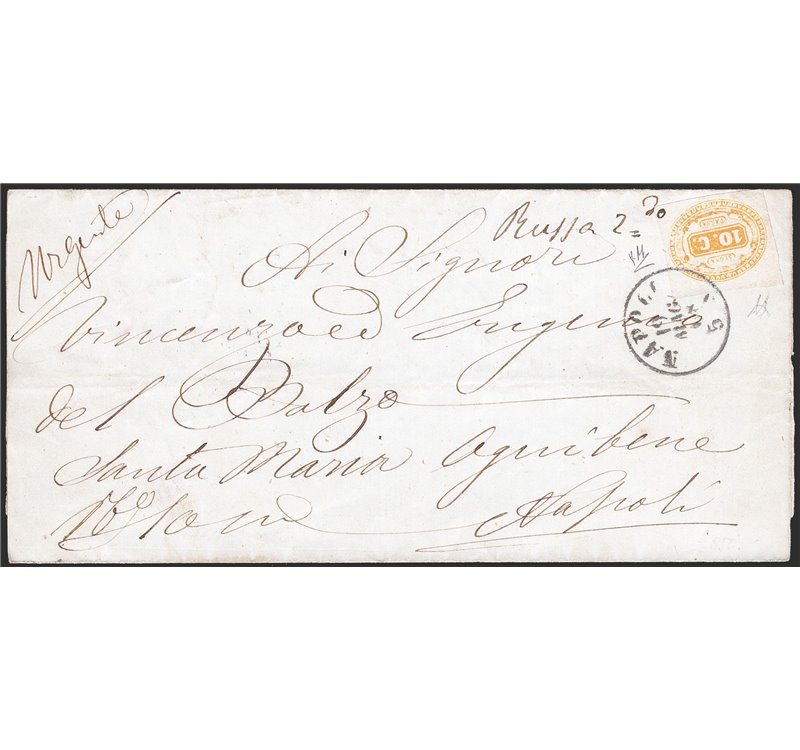 Urgente
Russa 2=30
Ai Signori
Vincenzo ed Eugenio
del Balzo
Santa Maria Ognibene
Napoli
10 C.
NAPOLI